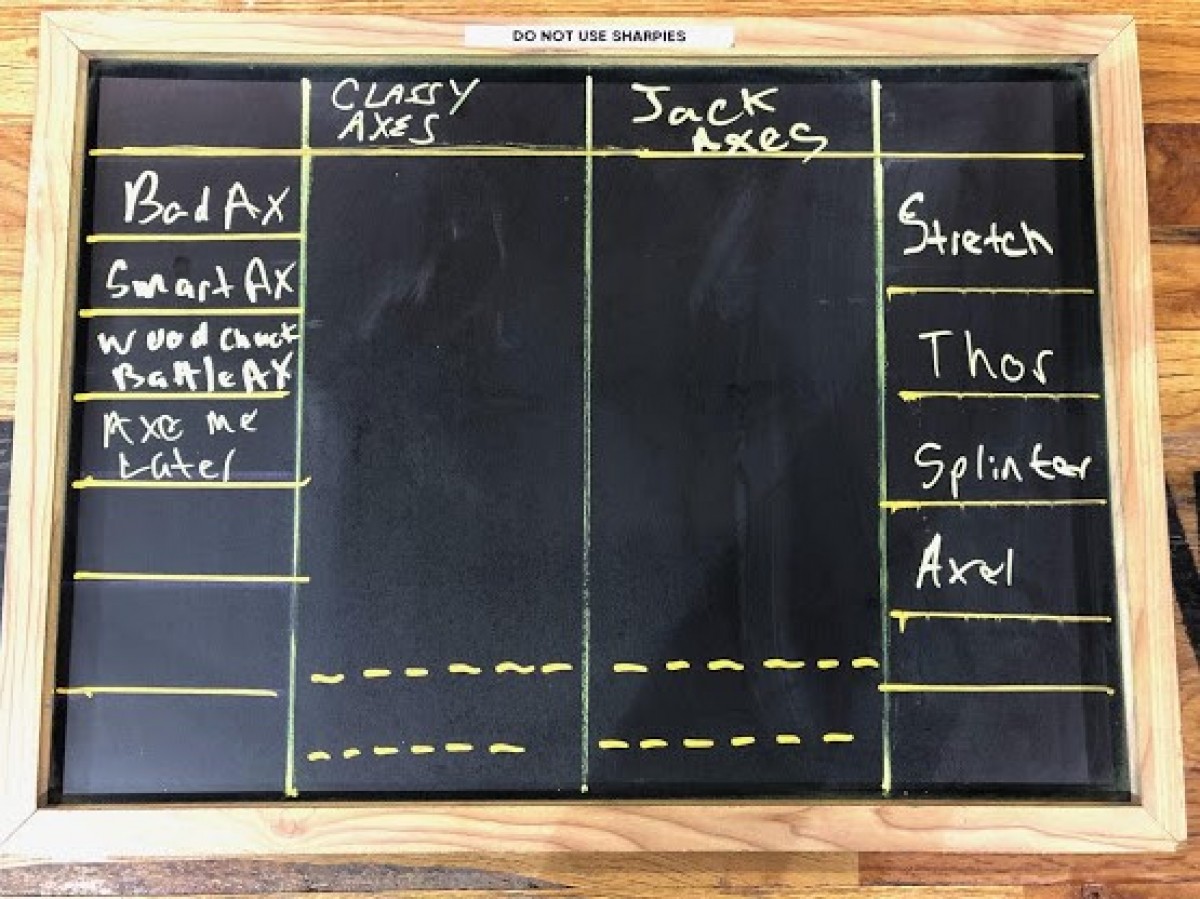 DO NOT USE SHARPIES
CLASSY
AXES
Jack
Axes
Bad Ax
Smart Ax
Woodchuck
BattleAx
Axe me
Later
Stretch
Thor
Splinter
Axel